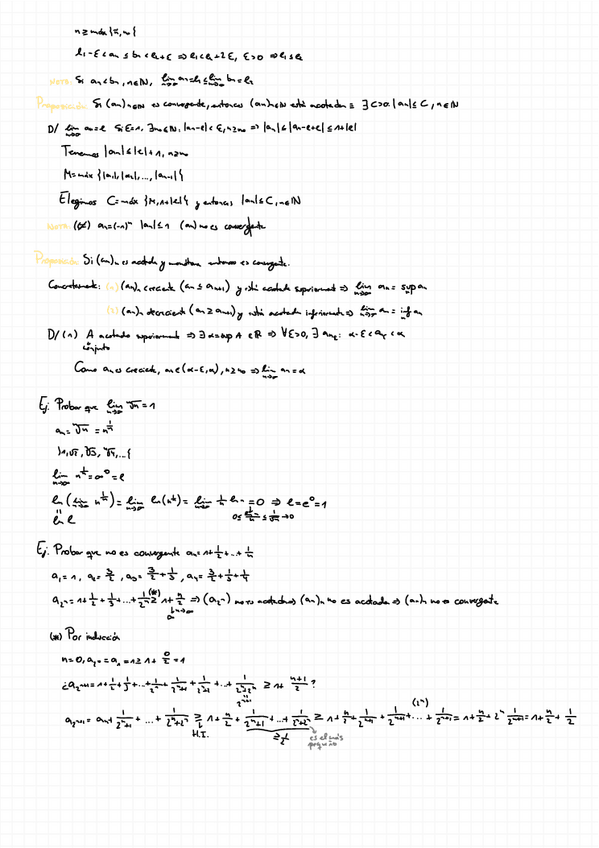 n ≥ máx {ñ, n₀}
l₁-ε < aₙ ≤ bₙ < l₂+ε ⇒ l₁ < l₂+2ε, ε>0 ⇒ l₁ ≤ l₂
NOTA: Si aₙ < bₙ, n∈ℕ, lim aₙ = l₁ ≤ lim bₙ = l₂
Proposición: Si (aₙ)n∈ℕ es convergente, entonces (aₙ)n∈ℕ está acotada ≡ ∃ C>0: |aₙ| ≤ C, n∈ℕ
D/ lim aₙ = l Si ε=1, ∃n₀∈ℕ: |aₙ-l| < ε, n≥n₀ ⇒ |aₙ| ≤ |aₙ-l+l| ≤ 1+|l|
Tenemos |aₙ| ≤ |l|+1, n≥n₀
M = máx {|a₁|, |a₂|, ..., |aₙ₋₁|}
Elegimos C = máx {M, 1+|l|} y entonces |aₙ| ≤ C, n∈ℕ
NOTA: (⇍) aₙ=(-1)ⁿ |aₙ| ≤ 1 (aₙ) no es convergente
Proposición: Si (aₙ)ₙ es acotada y monótona entonces es convergente.
Concretamente: (1) (aₙ)ₙ creciente (aₙ ≤ aₙ₊₁) y está acotada superiormente ⇒ lim aₙ = sup aₙ
(2) (aₙ)ₙ decreciente (aₙ ≥ aₙ₊₁) y está acotada inferiormente ⇒ lim aₙ = inf aₙ
D/ (1) A acotado superiormente ⇒ ∃ α=sup A ∈ ℝ ⇒ ∀ε>0, ∃ aₙ₀: α-ε < aₙ₀ < α
conjunto
Como aₙ es creciente, aₙ ∈ (α-ε, α), n≥n₀ ⇒ lim aₙ = α
Ej: Probar que lim ⁿ√n = 1
aₙ = ⁿ√n = n^(1/n)
{1, √2, ³√3, ⁴√4, ...}
lim n^(1/n) = ∞⁰ = l
ln(lim n^(1/n)) = lim ln(n^(1/n)) = lim 1/n ln n = 0 ⇒ l = e⁰ = 1
ln l
0 ≤ ln n/n ≤ 1/√n → 0
Ej: Probar que no es convergente aₙ = 1+1/2+...+1/n
a₁ = 1, a₂ = 3/2, a₃ = 3/2+1/3, a₄ = 3/2+1/3+1/4
a₂ₙ = 1+1/2+1/3+...+1/2ⁿ ≥(*) 1+n/2 ⇒ (a₂ₙ) no es acotada ⇒ (aₙ)ₙ no es acotada ⇒ (aₙ)ₙ no es convergente
n→∞
∞
(*) Por inducción
n=0, a₂₀ = a₁ = 1 ≥ 1+0/2 = 1
¿a₂ₙ₊₁ = 1+1/2+1/3+...+1/2ⁿ+1/(2ⁿ+1)+1/(2ⁿ+2)+...+1/(2ⁿ+2ⁿ) ≥ 1+(n+1)/2?
2ⁿ⁺¹
(2ⁿ)
a₂ₙ₊₁ = a₂ₙ+1/(2ⁿ+1)+...+1/(2ⁿ+2ⁿ) ≥ 1+n/2+1/(2ⁿ+1)+...+1/(2ⁿ+2ⁿ) ≥ 1+n/2+1/2ⁿ⁺¹+1/2ⁿ⁺¹+...+1/2ⁿ⁺¹ = 1+n/2+2ⁿ 1/2ⁿ⁺¹ = 1+n/2+1/2
H.I.
es el más
pequeño